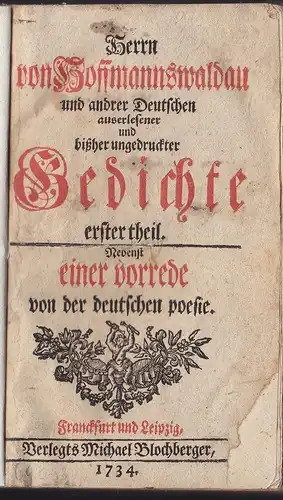 Herrn
von Hoffmannswaldau
und andrer Deutschen
auserlesener
und
bißher ungedruckter
Gedichte
erster theil.
Nebenst
einer vorrede
von der deutschen poesie.
Franckfurt und Leipzig,
Verlegts Michael Blochberger,
1734.